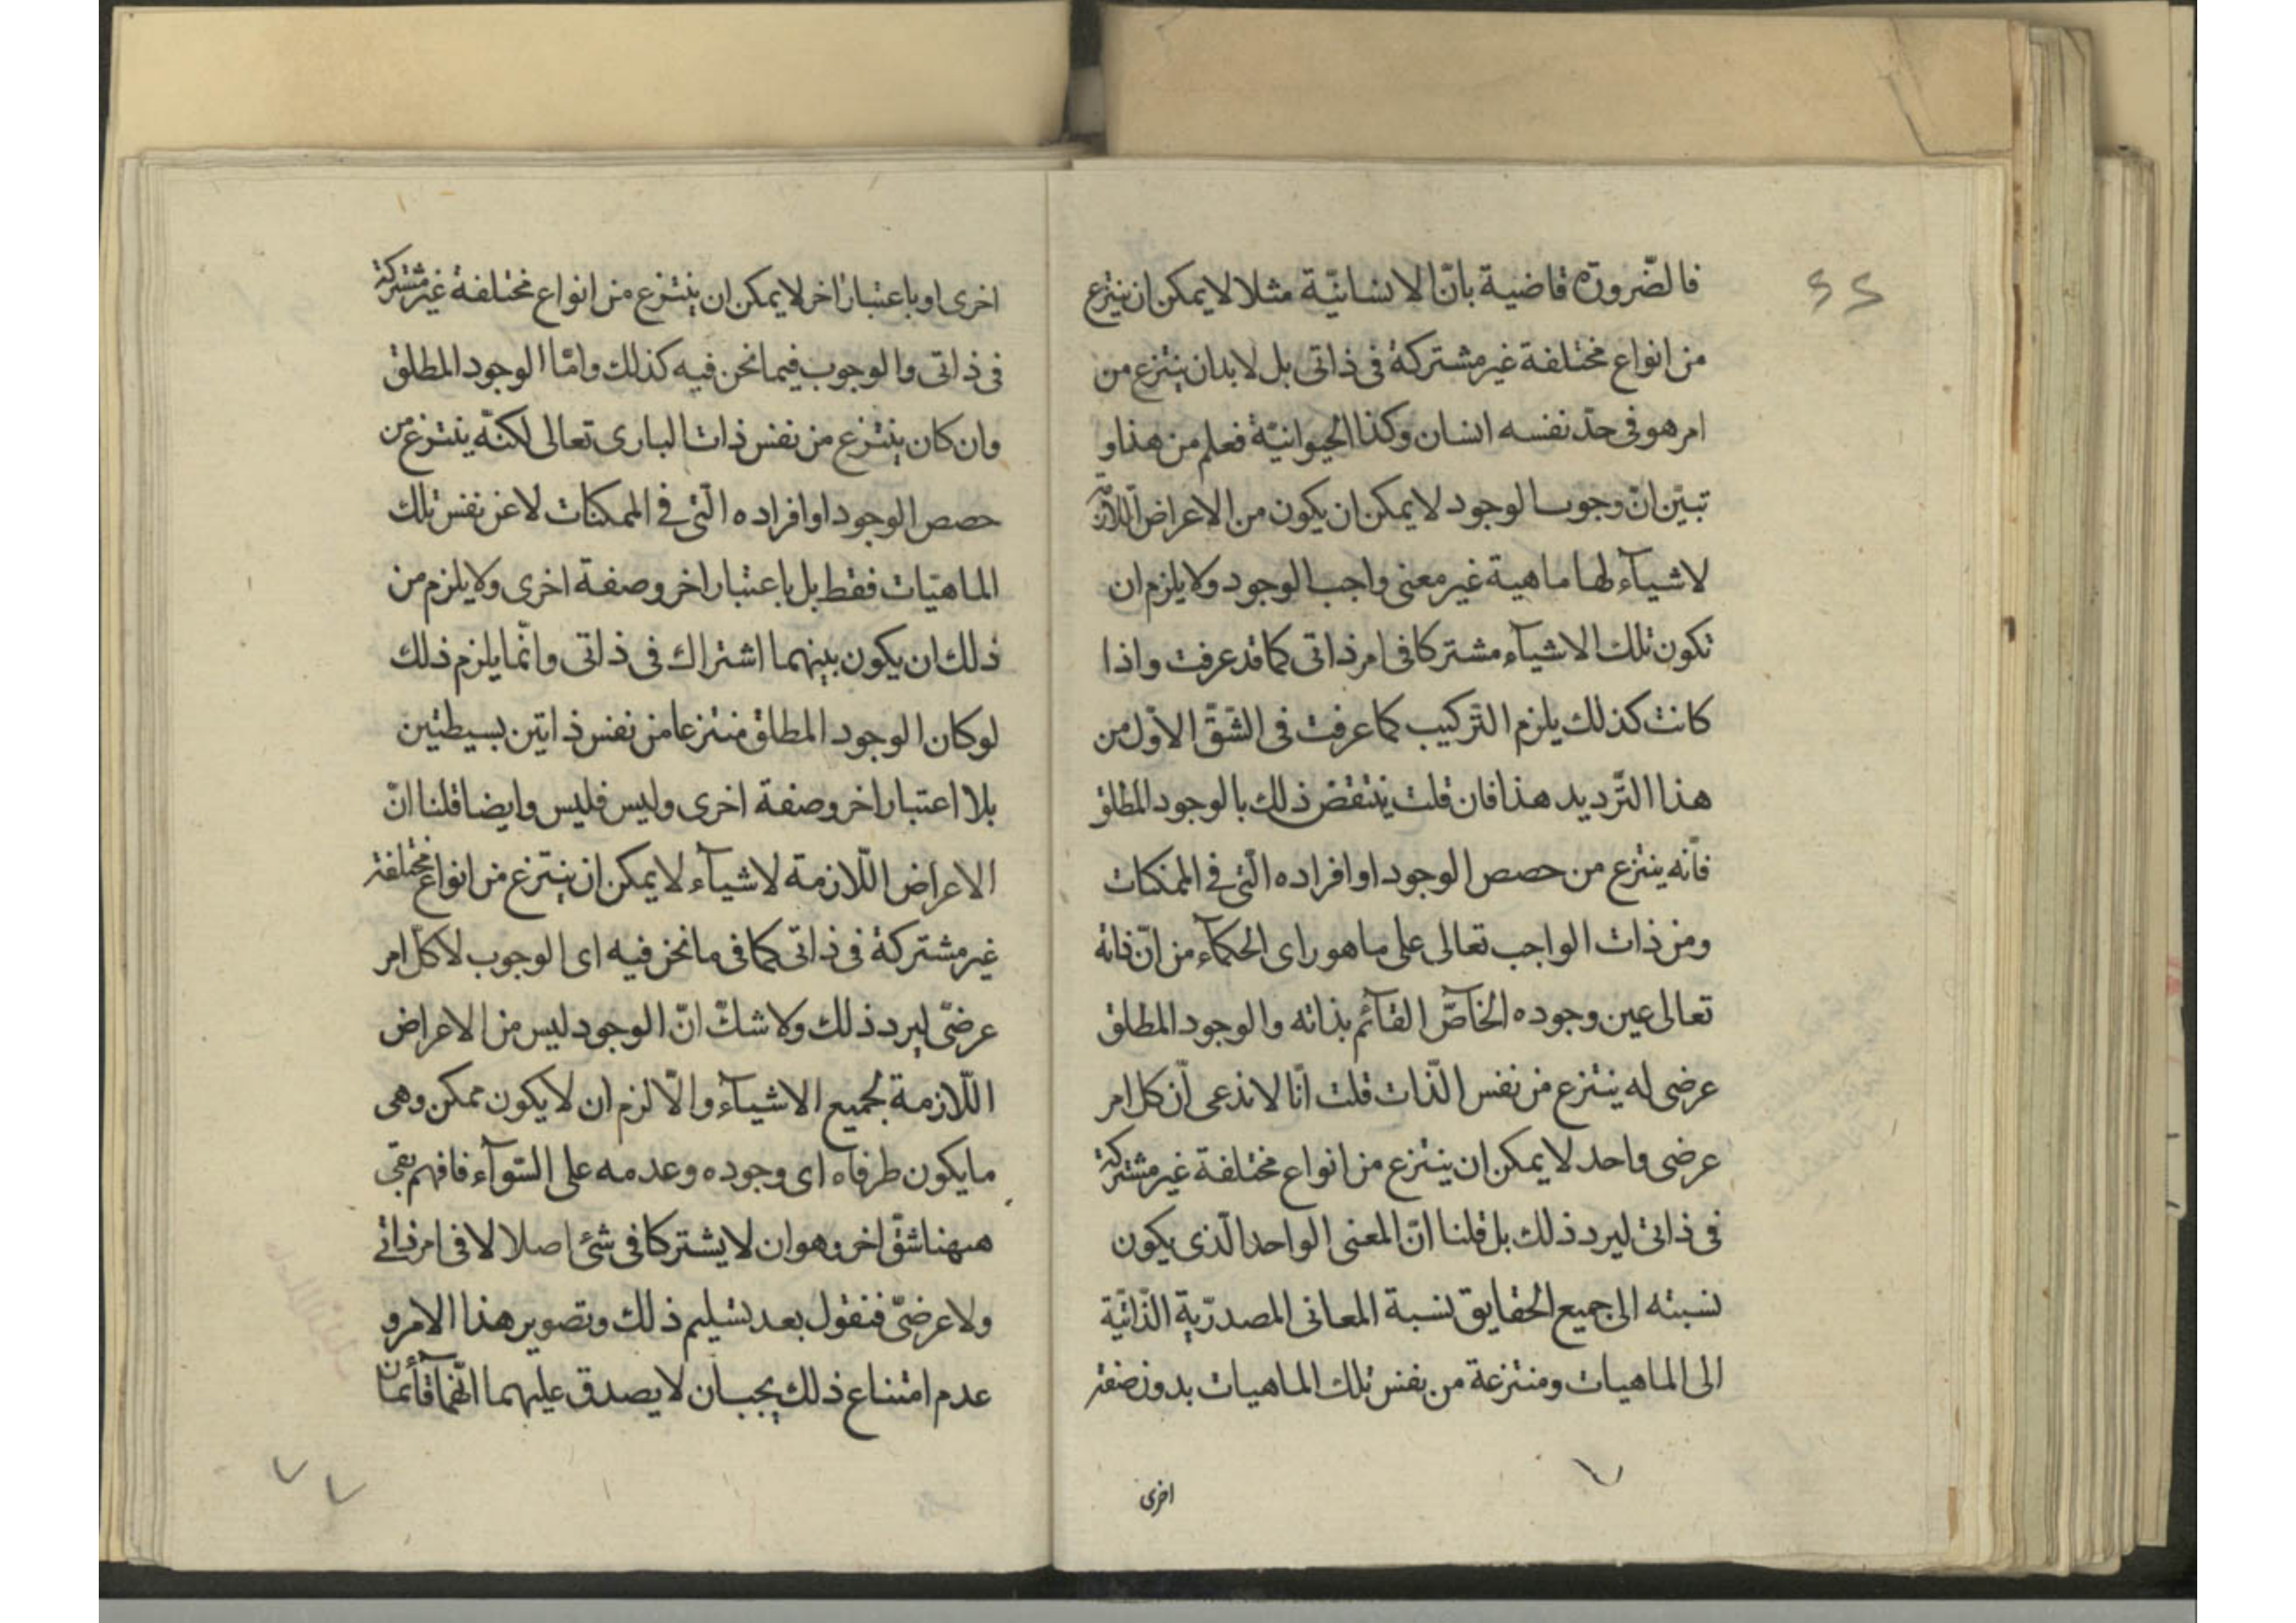 فالضّرورة قاضية بانّ الانسانيّة مثلا لايمكن ان ينتزع
من انواع مختلفة غير مشتركة فى ذاتى بل لابد ان ينتزع من
امر هو فى حدّ نفسه انسان وكذا الحيوانيّة فعلم من هذا و
تبيّن انّ وجوب الوجود لايمكن ان يكون من الاعراض اللّازمة
لاشيآء لها ماهية غير معنى واجب الوجود ولا يلزم ان
تكون تلك الاشيآء مشتركا فى امر ذاتى كما قد عرفت واذا
كانت كذلك يلزم التّركيب كما عرفت فى الشّقّ الاوّل من
هذا التّرديد هذا فان قلت ينتقض ذلك بالوجود المطلق
فانّه ينتزع من حصص الوجود او افراده الّتى فى الممكنات
ومن ذات الواجب تعالى على ما هو راى الحكمآء من انّ ذاته
تعالى عين وجوده الخاصّ القآئم بذاته والوجود المطلق
عرضى له ينتزع من نفس الذّات قلت انّا لا ندعى انّ كل امر
عرضى واحد لايمكن ان ينتزع من انواع مختلفة غير مشتركة
فى ذاتى ليرد ذلك بل قلنا انّ المعنى الواحد الّذى يكون
نسبته الى جميع الحقايق نسبة المعانى المصدريّة الذّاتيّة
الى الماهيات ومنتزعة من نفس تلك الماهيات بدون صفة
اخرى
اخرى او باعتبار اخر لايمكن ان ينتزع من انواع مختلفة غير مشتركة
فى ذاتى والوجوب فيما نحن فيه كذلك وامّا الوجود المطلق
وان كان ينتزع من نفس ذات البارى تعالى لكنّه ينتزع من
حصص الوجود او افراده الّتى فى الممكنات لا عن نفس تلك
الماهيّات فقط بل باعتبار اخر وصفة اخرى ولا يلزم من
ذلك ان يكون بينهما اشتراك فى ذاتى وانّما يلزم ذلك
لو كان الوجود المطلق منتزعا من نفس ذاتين بسيطتين
بلا اعتبار اخر وصفة اخرى وليس فليس وايضا قلنا انّ
الاعراض اللّازمة لاشيآء لايمكن ان ينتزع من انواع مختلفة
غير مشتركة فى ذاتى كما فى ما نحن فيه اى الوجوب لا كلّ امر
عرضىّ ليرد ذلك ولا شكّ انّ الوجود ليس من الاعراض
اللّازمة لجميع الاشيآء والّا لزم ان لا يكون ممكن وهى
ما يكون طرفاه اى وجوده وعدمه على السّوآء فافهم بقى
ههنا شقّ اخر وهو ان لا يشتركا فى شئ اصلا لا فى امر ذاتى
ولا عرضىّ فنقول بعد تسليم ذلك وتصوير هذا الامر و
عدم امتناع ذلك يجب ان لا يصدق عليهما انّهما قآئمان